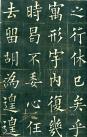 之行休已矣乎
寓形宇内復幾
時曷不委心任
去留胡為遑遑